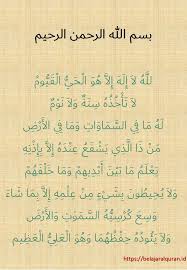 بسم الله الرحمن الرحيم
للَّهُ لَا إِلَهَ إِلَّا هُوَ الْحَيُّ الْقَيُّومُ
لَا تَأْخُذُهُ سِنَةٌ وَلَا نَوْمٌ
لَهُ مَا فِي السَّمَاوَاتِ وَمَا فِي الْأَرْضِ
مَنْ ذَا الَّذِي يَشْفَعُ عِنْدَهُ إِلَّا بِإِذْنِهِ
يَعْلَمُ مَا بَيْنَ أَيْدِيهِمْ وَمَا خَلْفَهُمْ
وَلَا يُحِيطُونَ بِشَيْءٍ مِنْ عِلْمِهِ إِلَّا بِمَا شَاءَ
وَسِعَ كُرْسِيُّهُ السَّمَاوَاتِ وَالْأَرْضَ
وَلَا يَئُودُهُ حِفْظُهُمَا وَهُوَ الْعَلِيُّ الْعَظِيم
https://belajaralquran.id